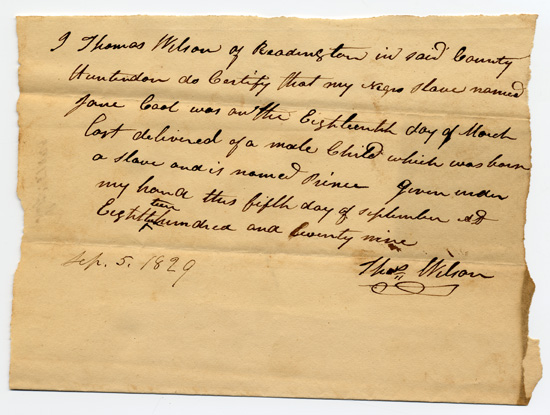 I Thomas Wilson of Readington in said County
Hunterdon do Certify that my Negro Slave named
Jane Cool was on the Eighteenth day of March
Last delivered of a male Child which was born
a Slave and is named Prince Given under
my hand this fifth day of September AD
Eighteen hundred and twenty nine
Thos Wilson
Sep. 5. 1829